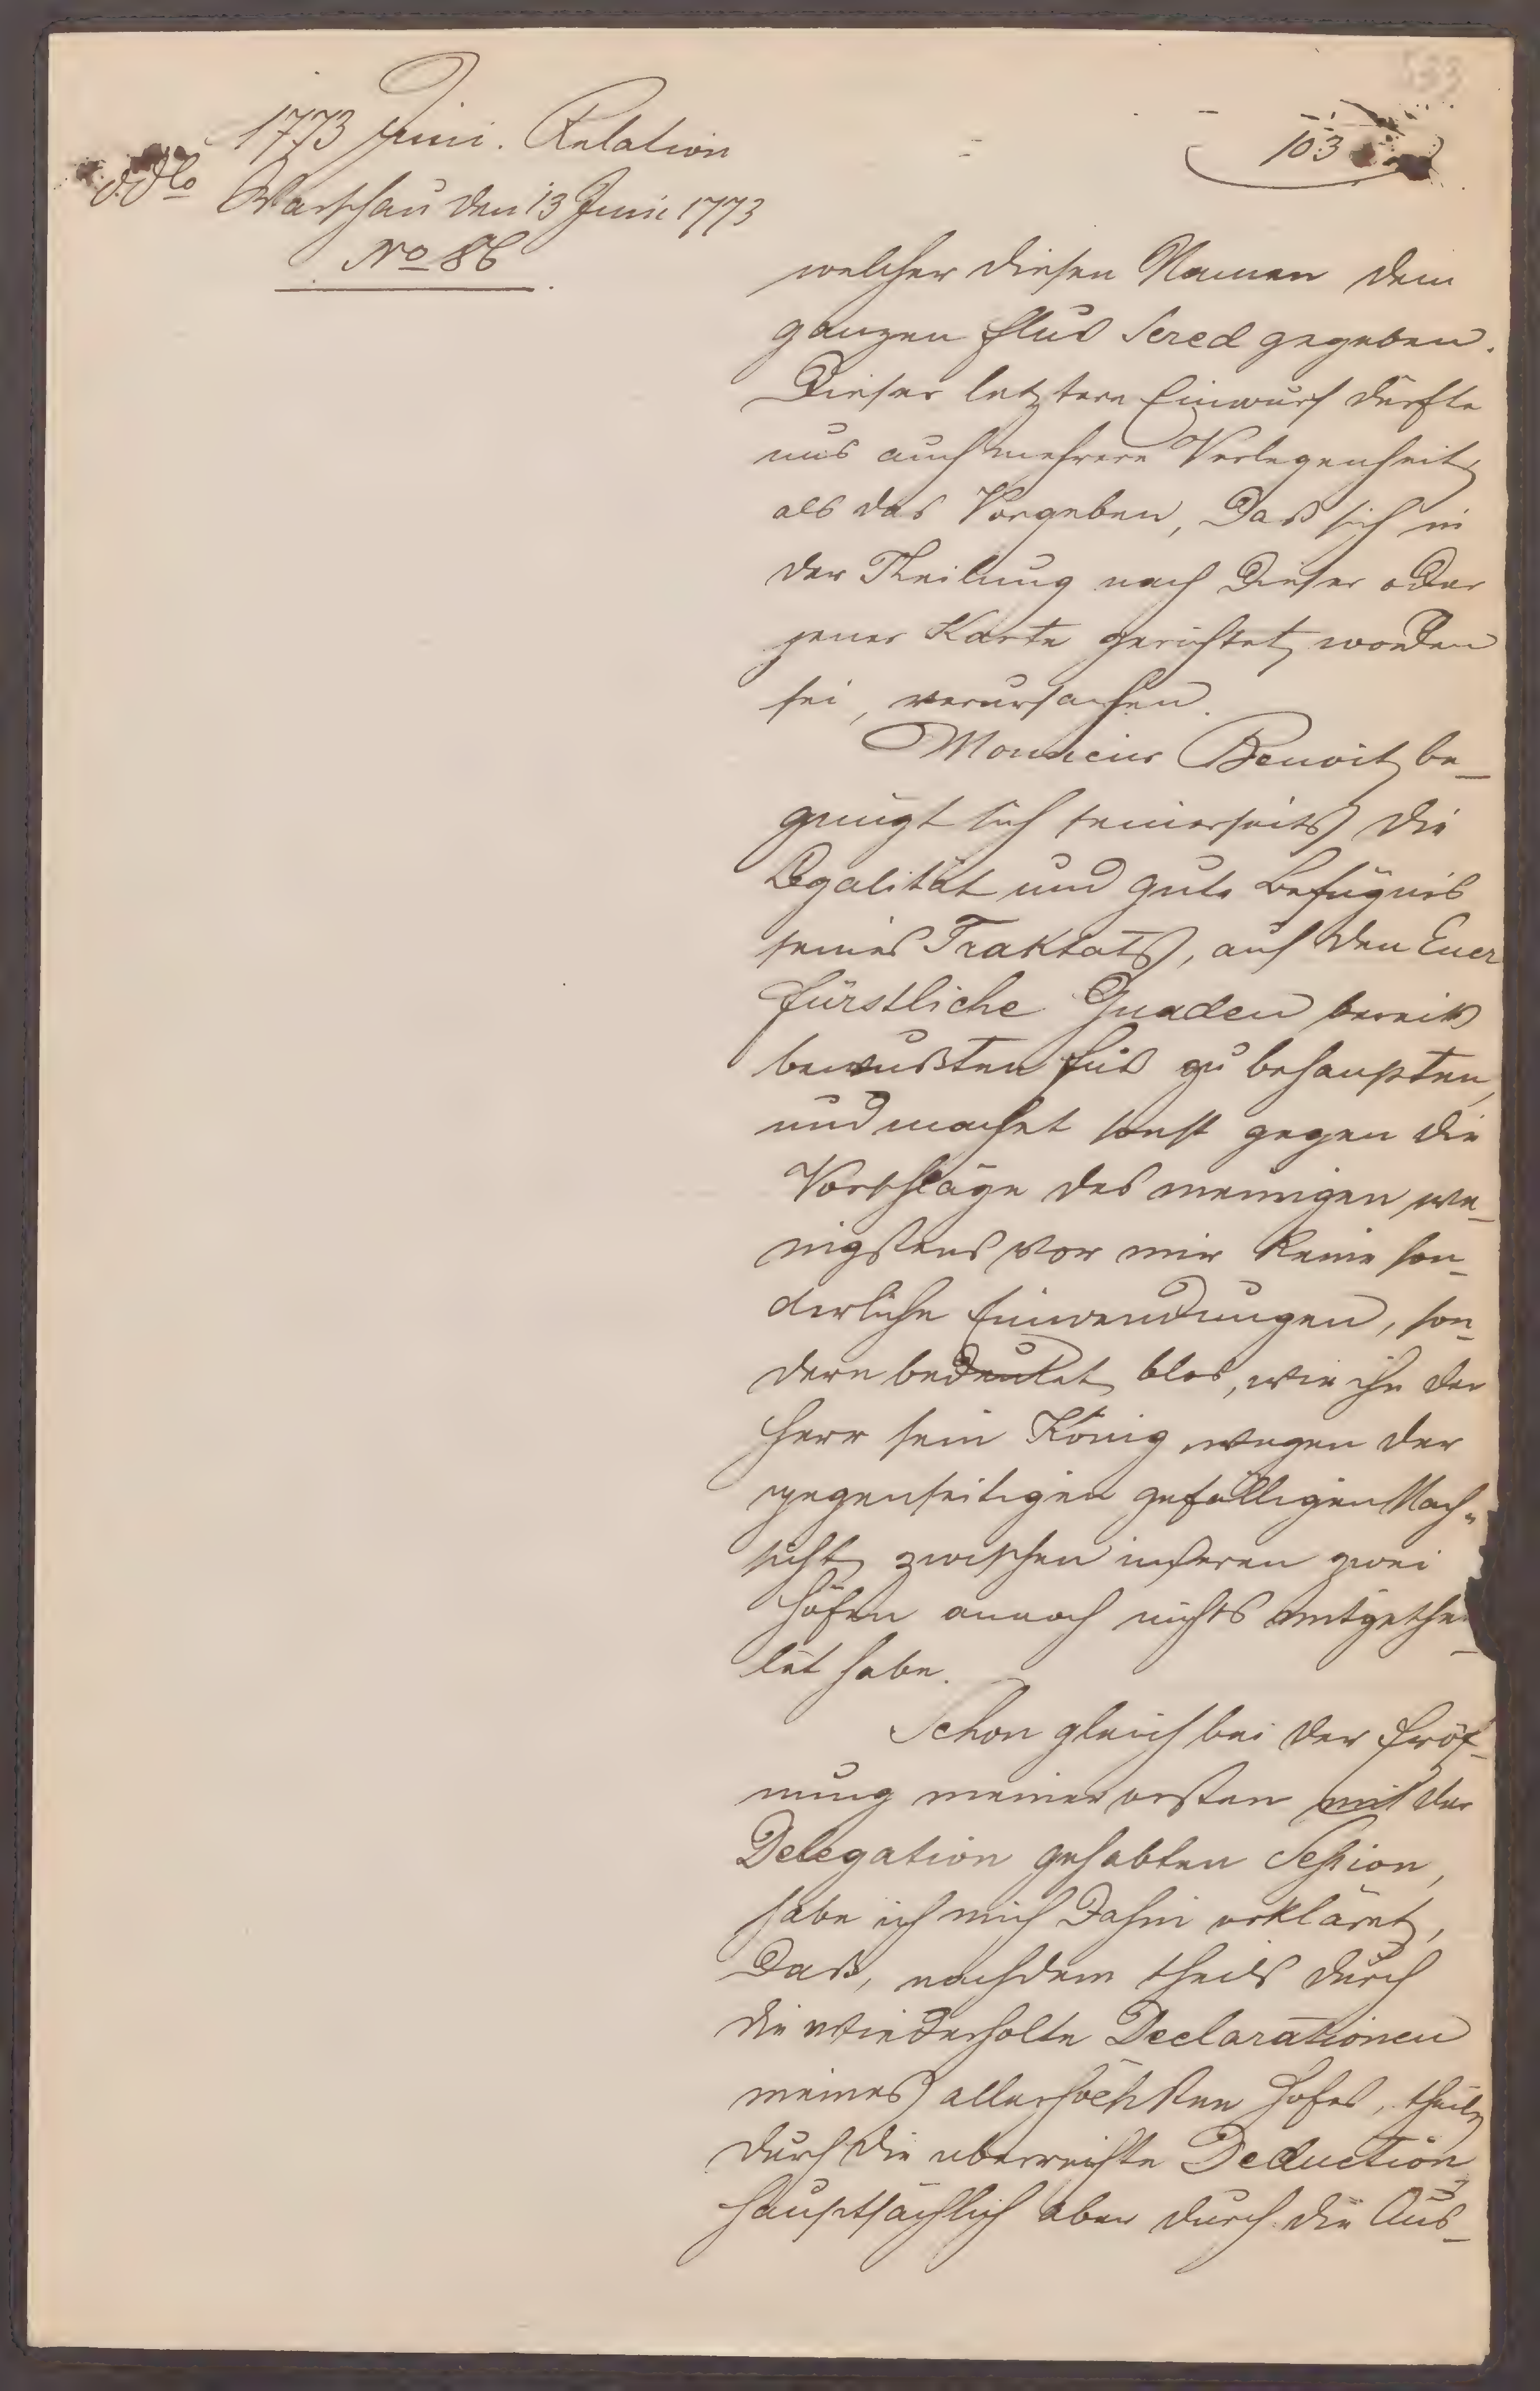 1773 Juni. Relation
ddto Warschau den 13 Juni 1773
No 86
103
welcher diesen Namen dem
ganzen Flus Sered gegeben.
Dieser letztere Einwurf dürfte
uns auch mehrere Verlegenheit,
als das Vorgeben, Daß sich in
der Theilung nach Dieser oder
jener Karte gerichtet worden
sei, verursachen.
Monsieur Benoit be-
gnügt sich seinerseits die
Legalität und gute Befugnis
seines Traktats, auf den Euer
fürstliche Gnaden bereits
bewußten Fuß zu behaupten,
und machet sonst gegen die
Vorschläge des meinigen we-
nigstens vor mir keine son-
derliche Einwendungen, son-
dern bedeutet blos, wie ihn der
Herr sein König wegen der
gegenseitigen gefälligen Nach-
sicht zwischen unseren zwei
Höfen annoch nichts mitgethei-
let habe.
Schon gleich bei der Eröf-
nung meiner ersten mit der
Delegation gehabten Session,
habe ich mich Dahin erkläret,
Daß, nachdem theils durch
die wiederholte Declarationen
meines allerhöchsten Hofes, theils
durch die überreichte Deduction
hauptsächlich aber durch die Aus-